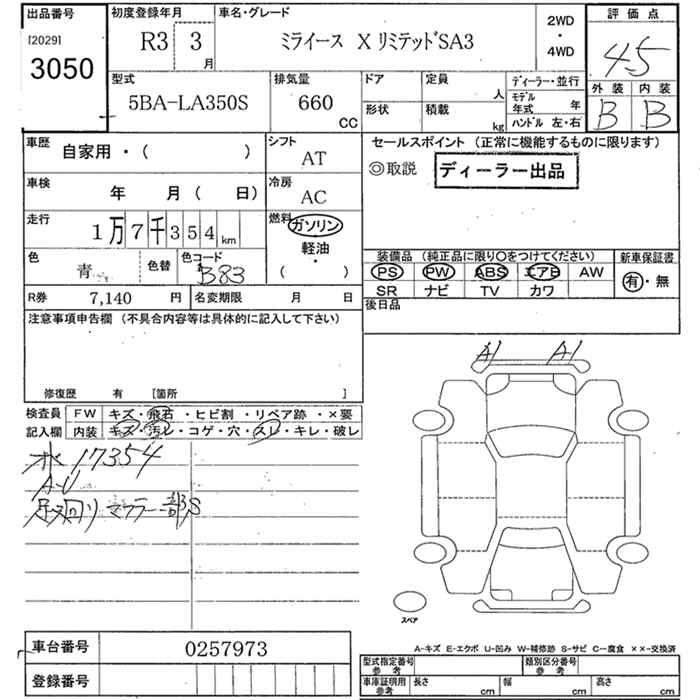 出品番号
[2029]
3050
初度登録年月
R3 3月
車名・グレード
ミライース X リミテッドSA3
2WD
・
4WD
評価点
4.5
外装 内装
B B
型式
5BA-LA350S
排気量
660 CC
ドア
定員 人
形状
積載 kg
ディーラー・並行
モデル年式 年
ハンドル 左・右
車歴
自家用・( )
シフト
AT
車検
年 月 ( 日)
冷房
AC
走行
1万7千354km
燃料
ガソリン
軽油
・
( )
色
青
色替
色コード
B83
R券 7,140 円
名変期限 月 日
セールスポイント (正常に機能するものに限ります)
◎取説 ディーラー出品
装備品 (純正品に限り○をつけてください)
PS PW ABS エアB AW
SR ナビ TV カワ
新車保証書
有・無
後日品
注意事項申告欄 (不具合内容等は具体的に記入して下さい)
修復歴 有 [箇所 ]
検査員記入欄
FW キズ・飛石・ヒビ割・リペア跡・×要
内装 キズ・汚レ・コゲ・穴・スレ・キレ・破レ
17354
A-U
足廻り マフラー一部S
A1 A1
スペア
車台番号 0257973
登録番号
A-キズ E-エクボ U-凹み W-補修跡 S-サビ C-腐食 ××-交換済
型式指定番号 参考
類別区分番号 参考
車庫証明用 参考
長さ cm 幅 cm 高さ cm